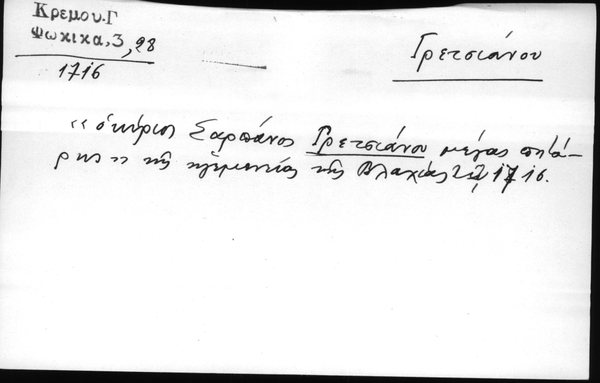 Κρεμου.Γ
Φωκικα,3,28
1716
Γρετσιάνου
"ὁ κύριος Σαρπάνος Γρετσιάνου μέγας πιτά-
ρης" τῆς ἡγεμονίας τῆς Βλαχίας 1716.